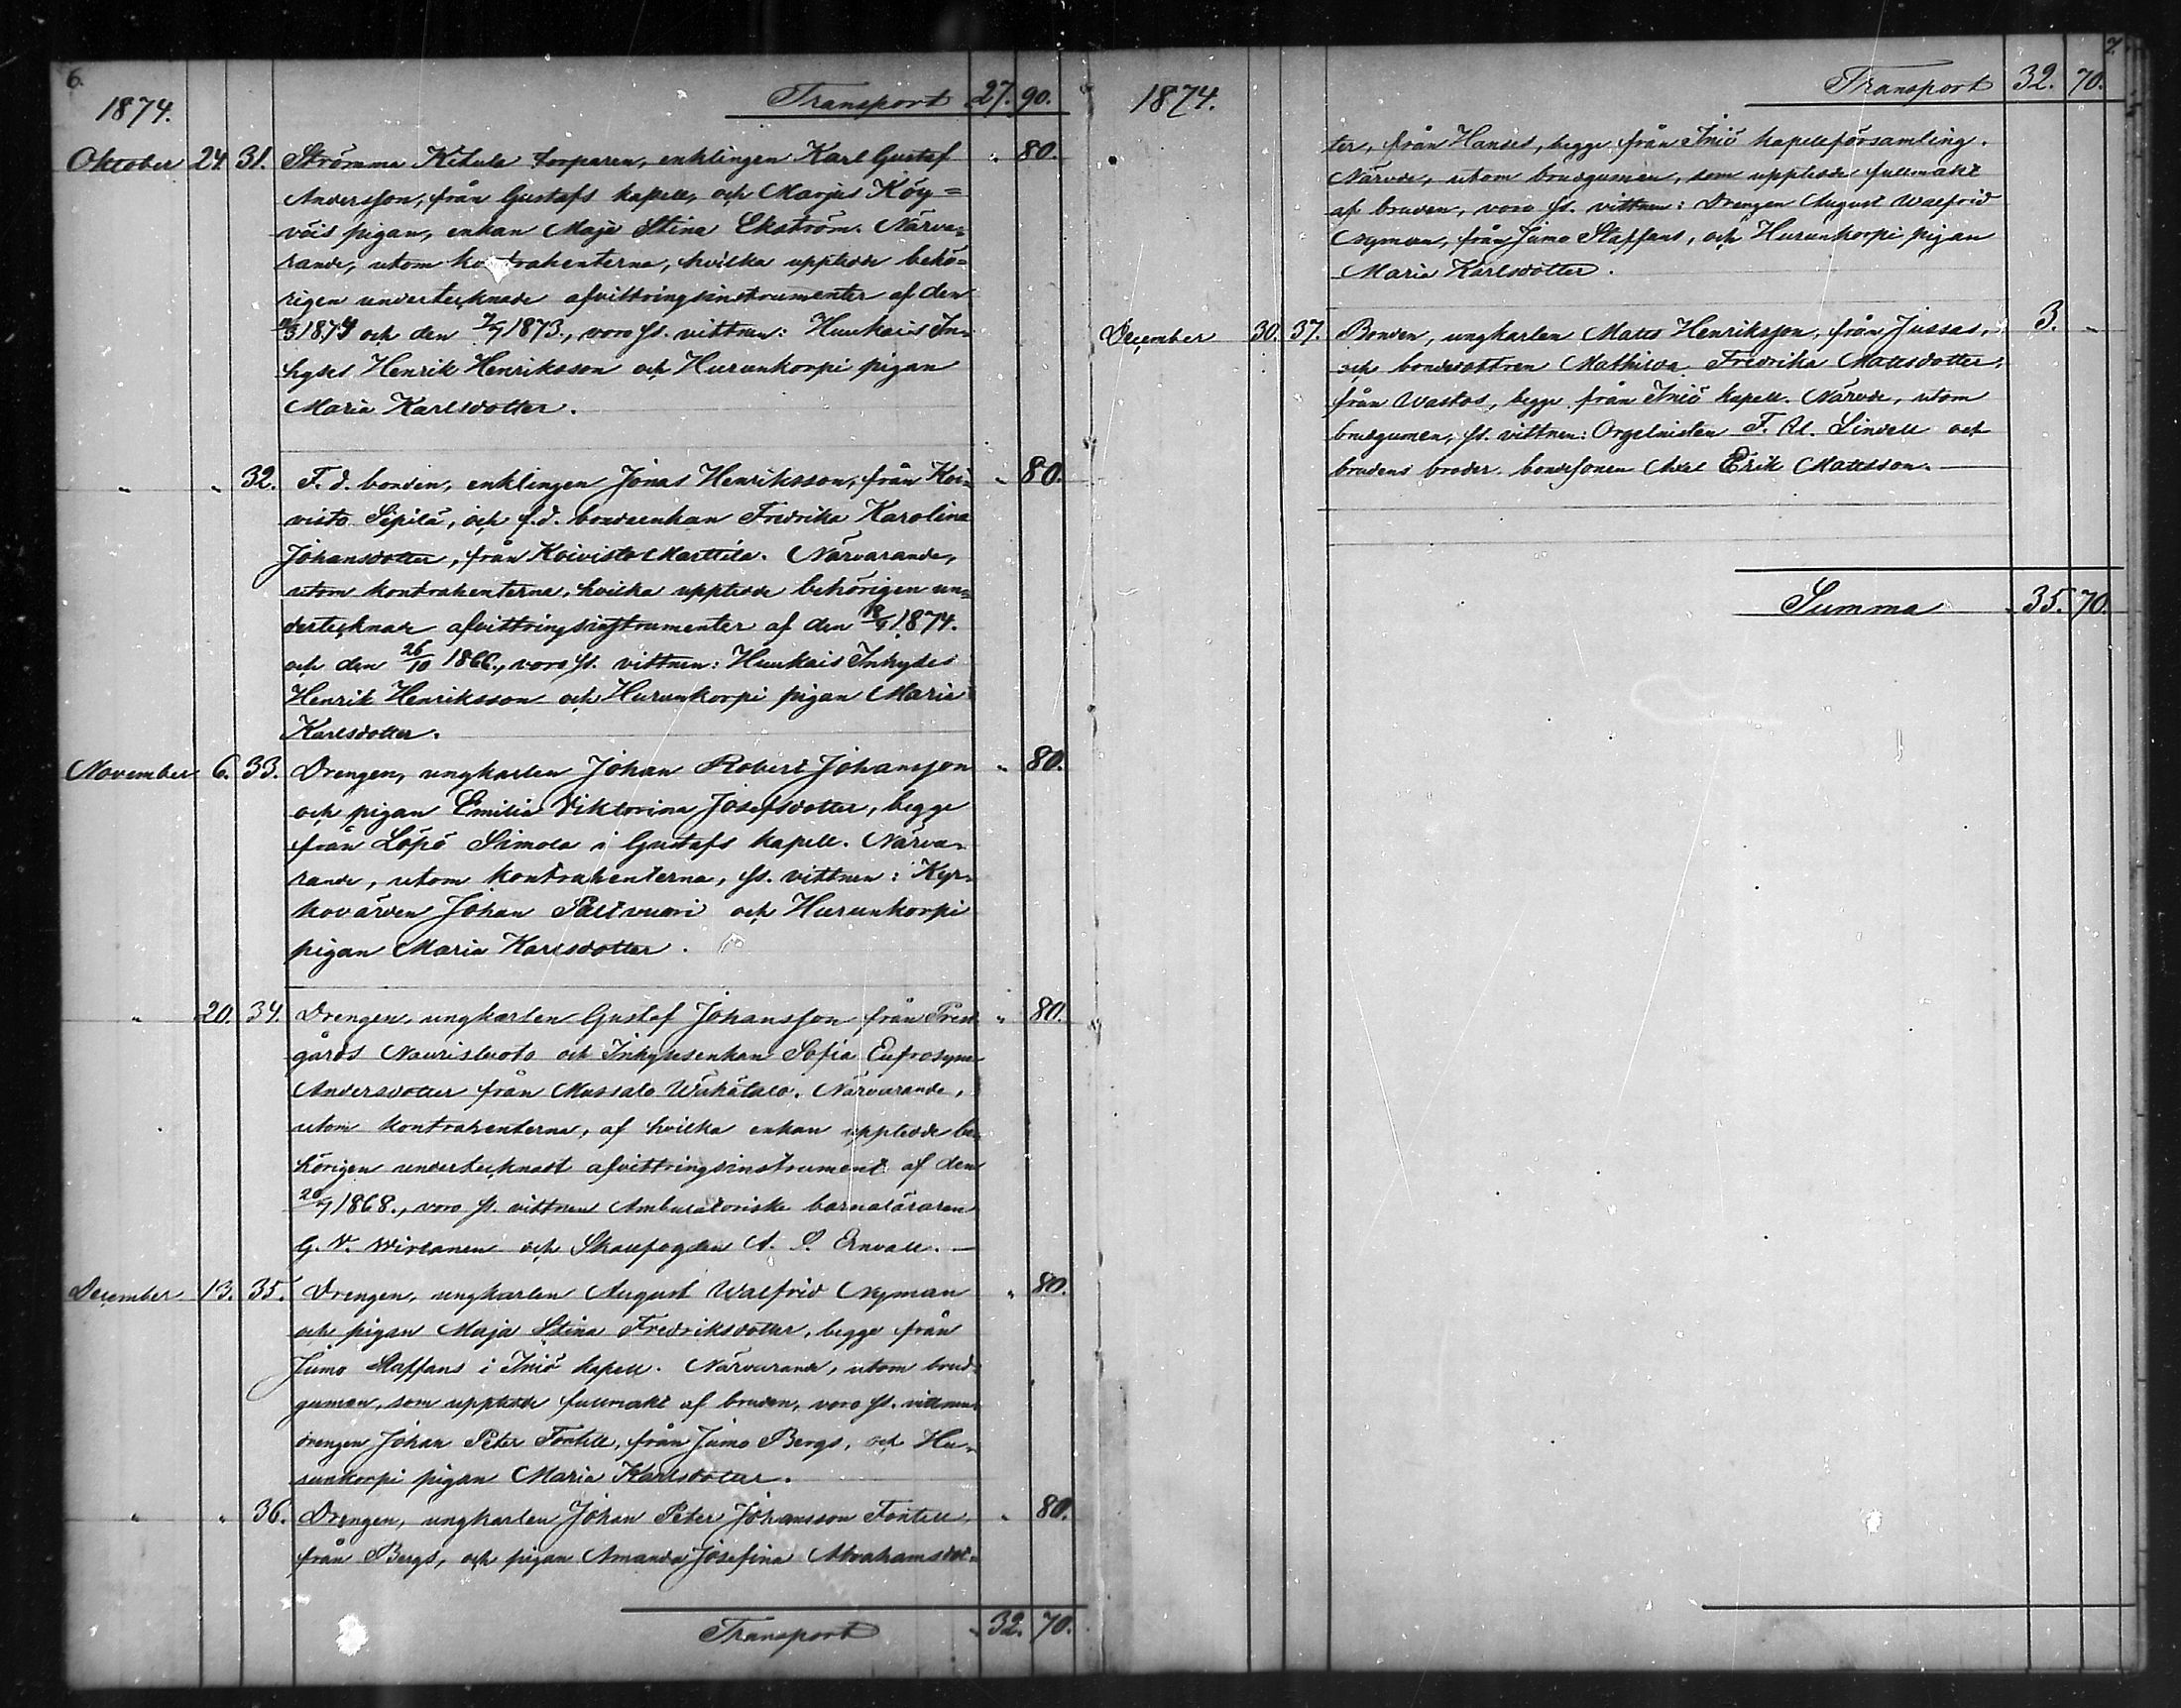 6.
1874.
Transport 27. 90.
Oktober 24. 31. Strömma Kitula torparen, enklingen Karl Gustaf " 80.
Andersson, från Gustafs kapell, och Marjas Köy=
väis pigan, enkan Maja Stina Ekström. Närva=
rande, utom kontrahenterne, hvilka upptede behö=
rigen undertecknade afvittringsinstrumenter af den
1874 och den 7/7 1873., voro ss. vittnen: Huukais In-
hyses Henrik Henriksson och Hurunkorpi pigan
Maria Karlsdotter.
" " 32. F. d. bonden, enklingen Jonas Henriksson, från Koi= " 80.
visto Sipilä, och f. d. bondeenkan Fredrika Karolina
Johansdotter, från Koivisto Marttila. Närvarande,
utom kontrahenterne, hvilka upptede behörigen un=
dertecknade afvittringsinstrumenter af den 1874.
och den 26/10 1866., voro ss. vittnen: Huukais Inhyses
Henrik Henriksson och Hurunkorpi pigan Maria
Karlsdotter.
November 6. 33. Drengen, ungkarlen Johan Robert Johansson " 80.
och pigan Emilia Viktorina Josefsdotter, begge
från Löpö Simola i Gustafs kapell. Närva=
rande, utom kontrahenterna, ss. vittnen: Kyr=
kovärden Johan Palivuori och Hurunkorpi
pigan Maria Karlsdotter.
" 20. 34. Drengen, ungkarlen Gustaf Johansson från Prest= " 80.
gårds Naurisluoto och Inhysesenkan Sofia Eufrosyne
Andersdotter från Mussalo Wähätalo. Närvarande,
utom kontrahenterna, af hvilka enkan upptede be=
hörigen undertecknadt afvittringsinstrument af den
20/7 1868., voro ss. vittnen Ambulatoriske barnaläraren
G. V. Wirtanen och Skallfogden A. S. Ernvall.
December 13. 35. Drengen, ungkarlen August Walfrid Nyman " 80.
och pigan Maja Stina Fredriksdotter, begge från
Jumo Staffans i Iniö kapell. Närvarande, utom brud=
gumen, som uppteede fullmakt af bruden, voro ss. vittnen
drengen Johan Peter Fontell, från Jumo Bergs, och Hu=
runkorpi pigan Maria Karlsdotter.
" " 36. Drengen, ungkarlen Johan Peter Johansson Fontell, " 80.
från Bergs, och pigan Amanda Josefina Abrahamsdot=
Transport 32. 70.
7.
1874.
Transport 32. 70.
ter, från Hanses, begge från Iniö kapellförsamling.
Närvde, utom brudgumen, som uppteede fullmakt
af bruden, voro ss. vittnen: Drengen August Walfrid
Nyman, från Jumo Staffans, och Hurunkorpi pigan
Maria Karlsdotter.
December 30. 37. Bonden, ungkarlen Mats Henriksson, från Jussas, 3. "
och bondedottren Mathilda Fredrika Matsdotter,
från Wastos, begge från Iniö kapell. Närvde, utom
brudgumen, ss. vittnen: Orgelnisten F. Lindell och
brudens broder bondesonen Axel Erik Matsson.
Summa 35. 70.